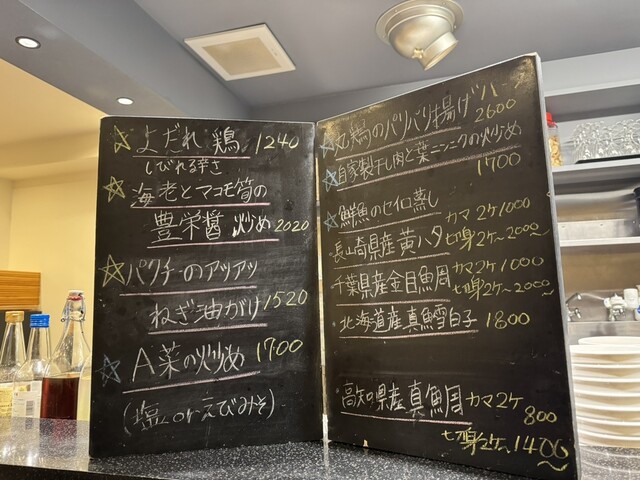 ☆よだれ鶏 1240
しびれる辛さ
☆海老とマコモ筍の
豊栄醤炒め 2020
☆パクチーのアツアツ
ねぎ油がけ 1520
☆A菜の炒め 1700
(塩 or えびみそ)
☆丸鶏のパリパリ揚げ
2600
☆自家製干し肉と葉ニンニクの炒め
1700
☆鮮魚のセイロ蒸し
長崎県産黄ハタ カマ2ケ1000
切身2ケ〜2000〜
千葉県産金目鯛 カマ2ケ1000
切身2ケ〜2000〜
北海道産真鱈白子 1800
高知県産真鯛 カマ2ケ
800
切身2ケ〜1400〜